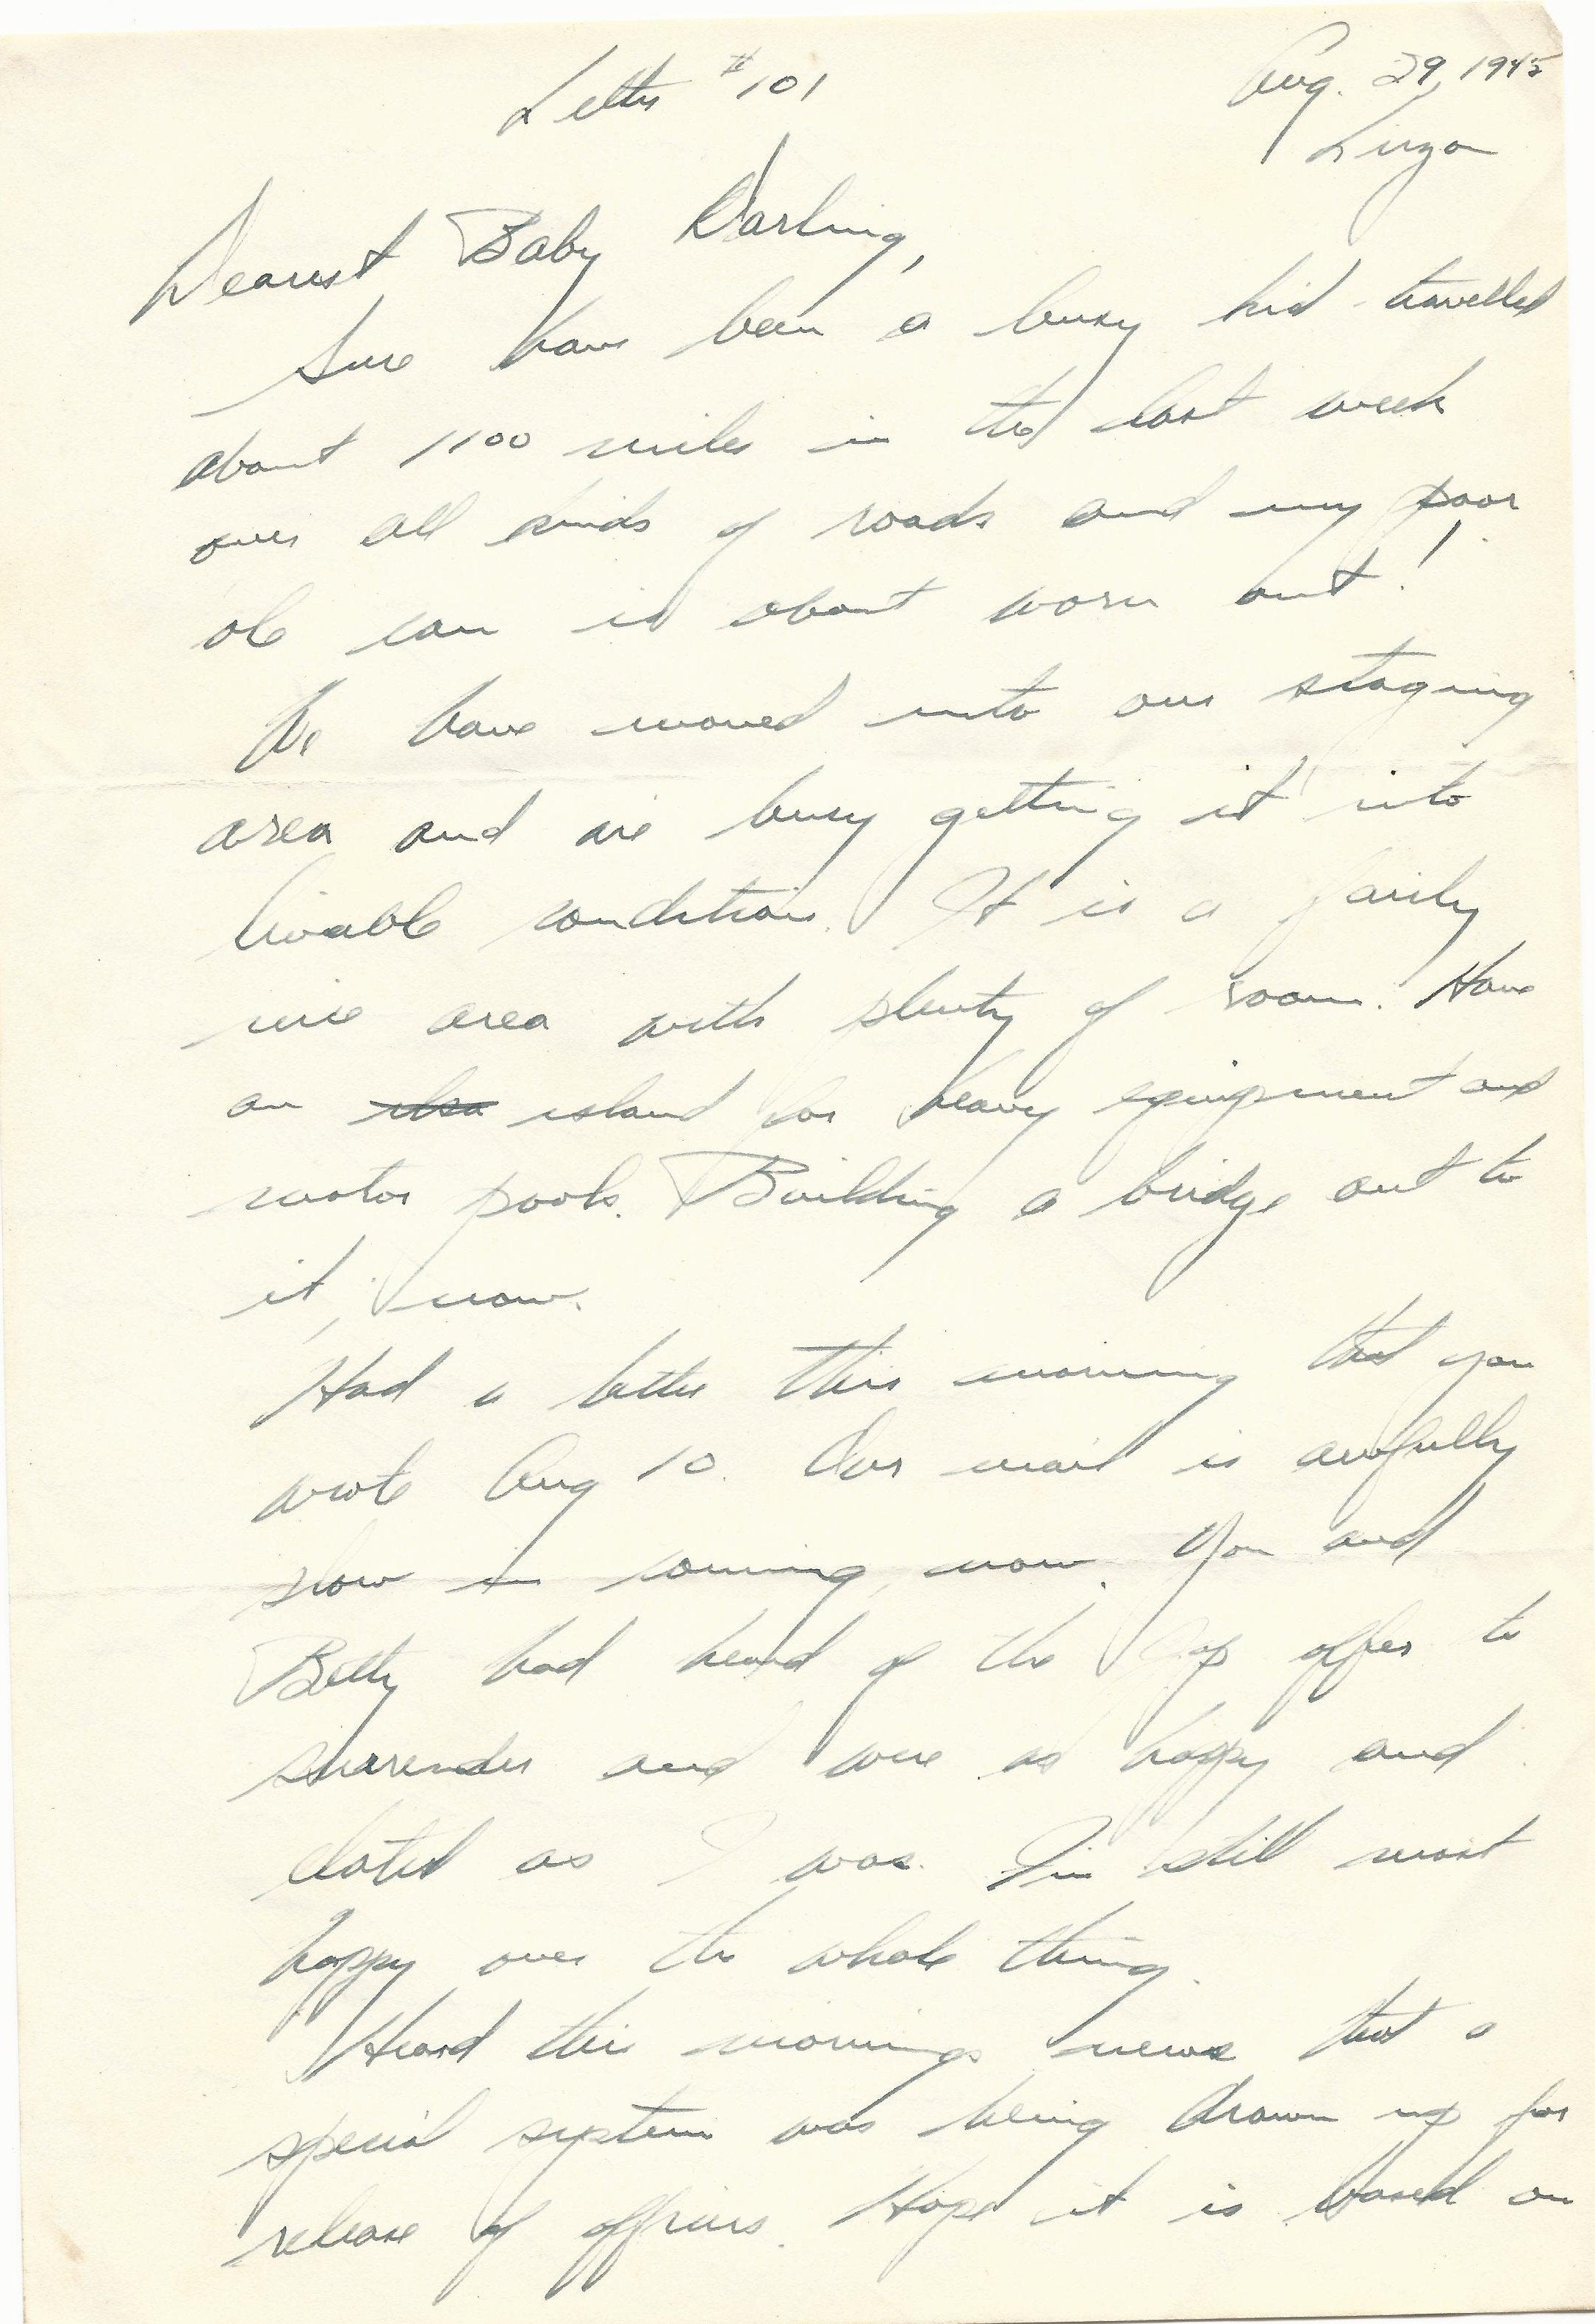 Letter #101
Aug. 29, 1945
Luzon
Dearest Baby Darling,
Sure have been a busy kid - travelled
about 1100 miles in the last week
over all kinds of roads and my poor
ole can is about worn out!
We have moved into our staging
area and are busy getting it into
livable condition. It is a fairly
nice area with plenty of room. Have
an island for heavy equipment and
motor pools. Building a bridge out to
it, now.
Had a letter this morning that you
wrote Aug 10. Our mail is awfully
slow in coming, now. You and
Betty had heard of the Jap offer to
surrender and were as happy and
elated as I was. I'm still most
happy over the whole thing.
Heard this mornings news that a
special system was being drawn up for
release of officers. Hope it is based on